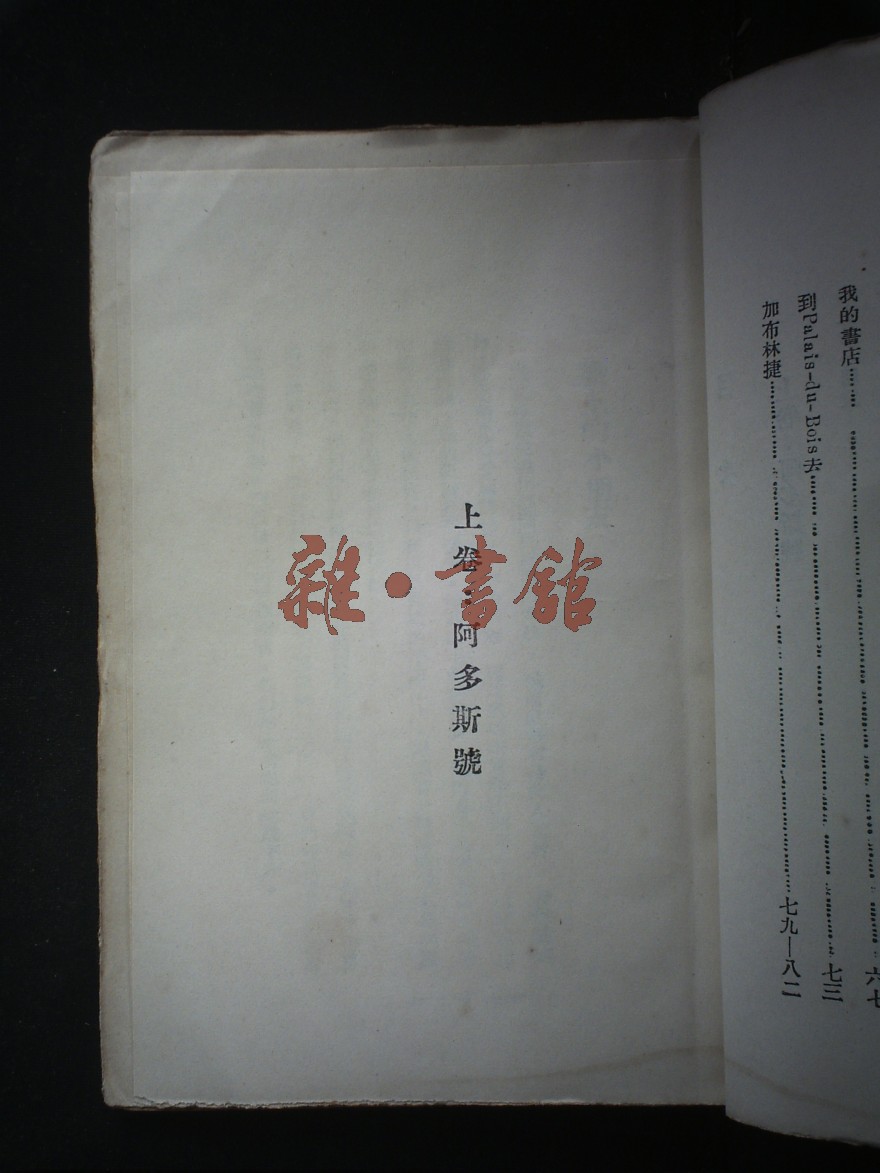 我的書店 六七
到Palais-du-Bois去 七三
加布林捷 七九—八二
上卷：阿多斯號
雜·書館